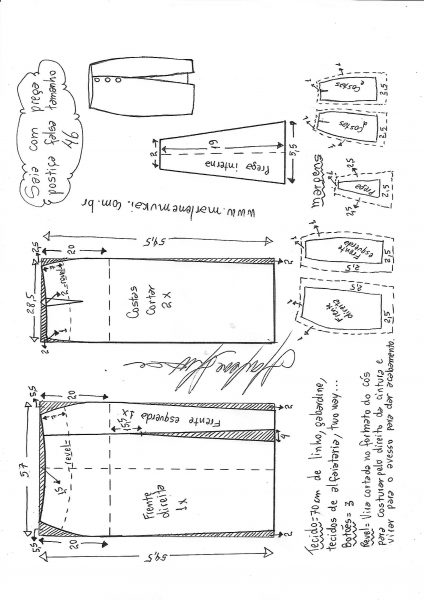 Saia com prega
postiça falsa tamanho
46
www.marlenemukai.com.br
Prega interna
19
2
5,5
Costas
Cortar
2x
59,5
28,5
20
2,5
2
2
2
Frente
direita
1x
Frente esquerda 1x
revel=
57
5,5
5,5
20
20
59,5
15
4
2
2
margens
Costas
3,5
Costas
3,5
Prega
2,5
2,5
Frente
esquerda
2,5
Frente
direita
2,5
2,5
Tecido=70cm de linho, gabardine,
tecidos de alfaiataria, two way...
Botões= 3
Revel= Vira cortada no formato do cós
para costurar pelo direito da cintura e
virar para o avesso para dar acabamento.